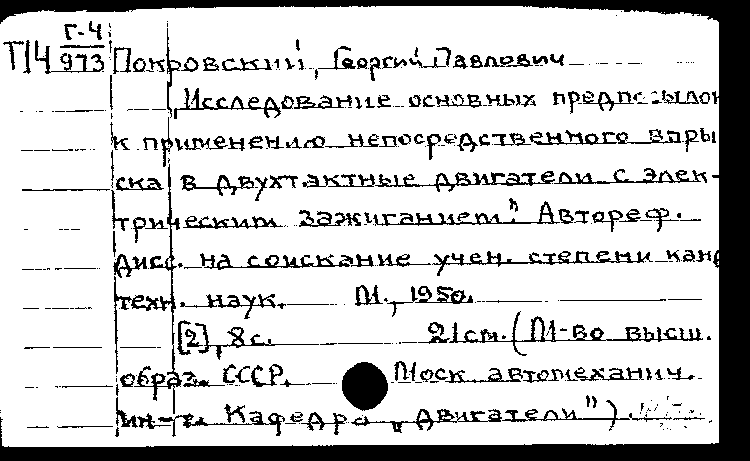 Г-4
Т14 973 Покровский, Георгий Павлович
„Исследование основных предпосылок
к применению непосредственного впры
ска в двухтактные двигатели с элек-
трическим зажиганием". Автореф.
дисс. на соискание учен. степени канд
техн. наук. М., 1950.
[2], 8 с. 21 см. (М-во высш.
образ. СССР. Моск. автомеханич.
ин-т. Кафедра „Двигатели").